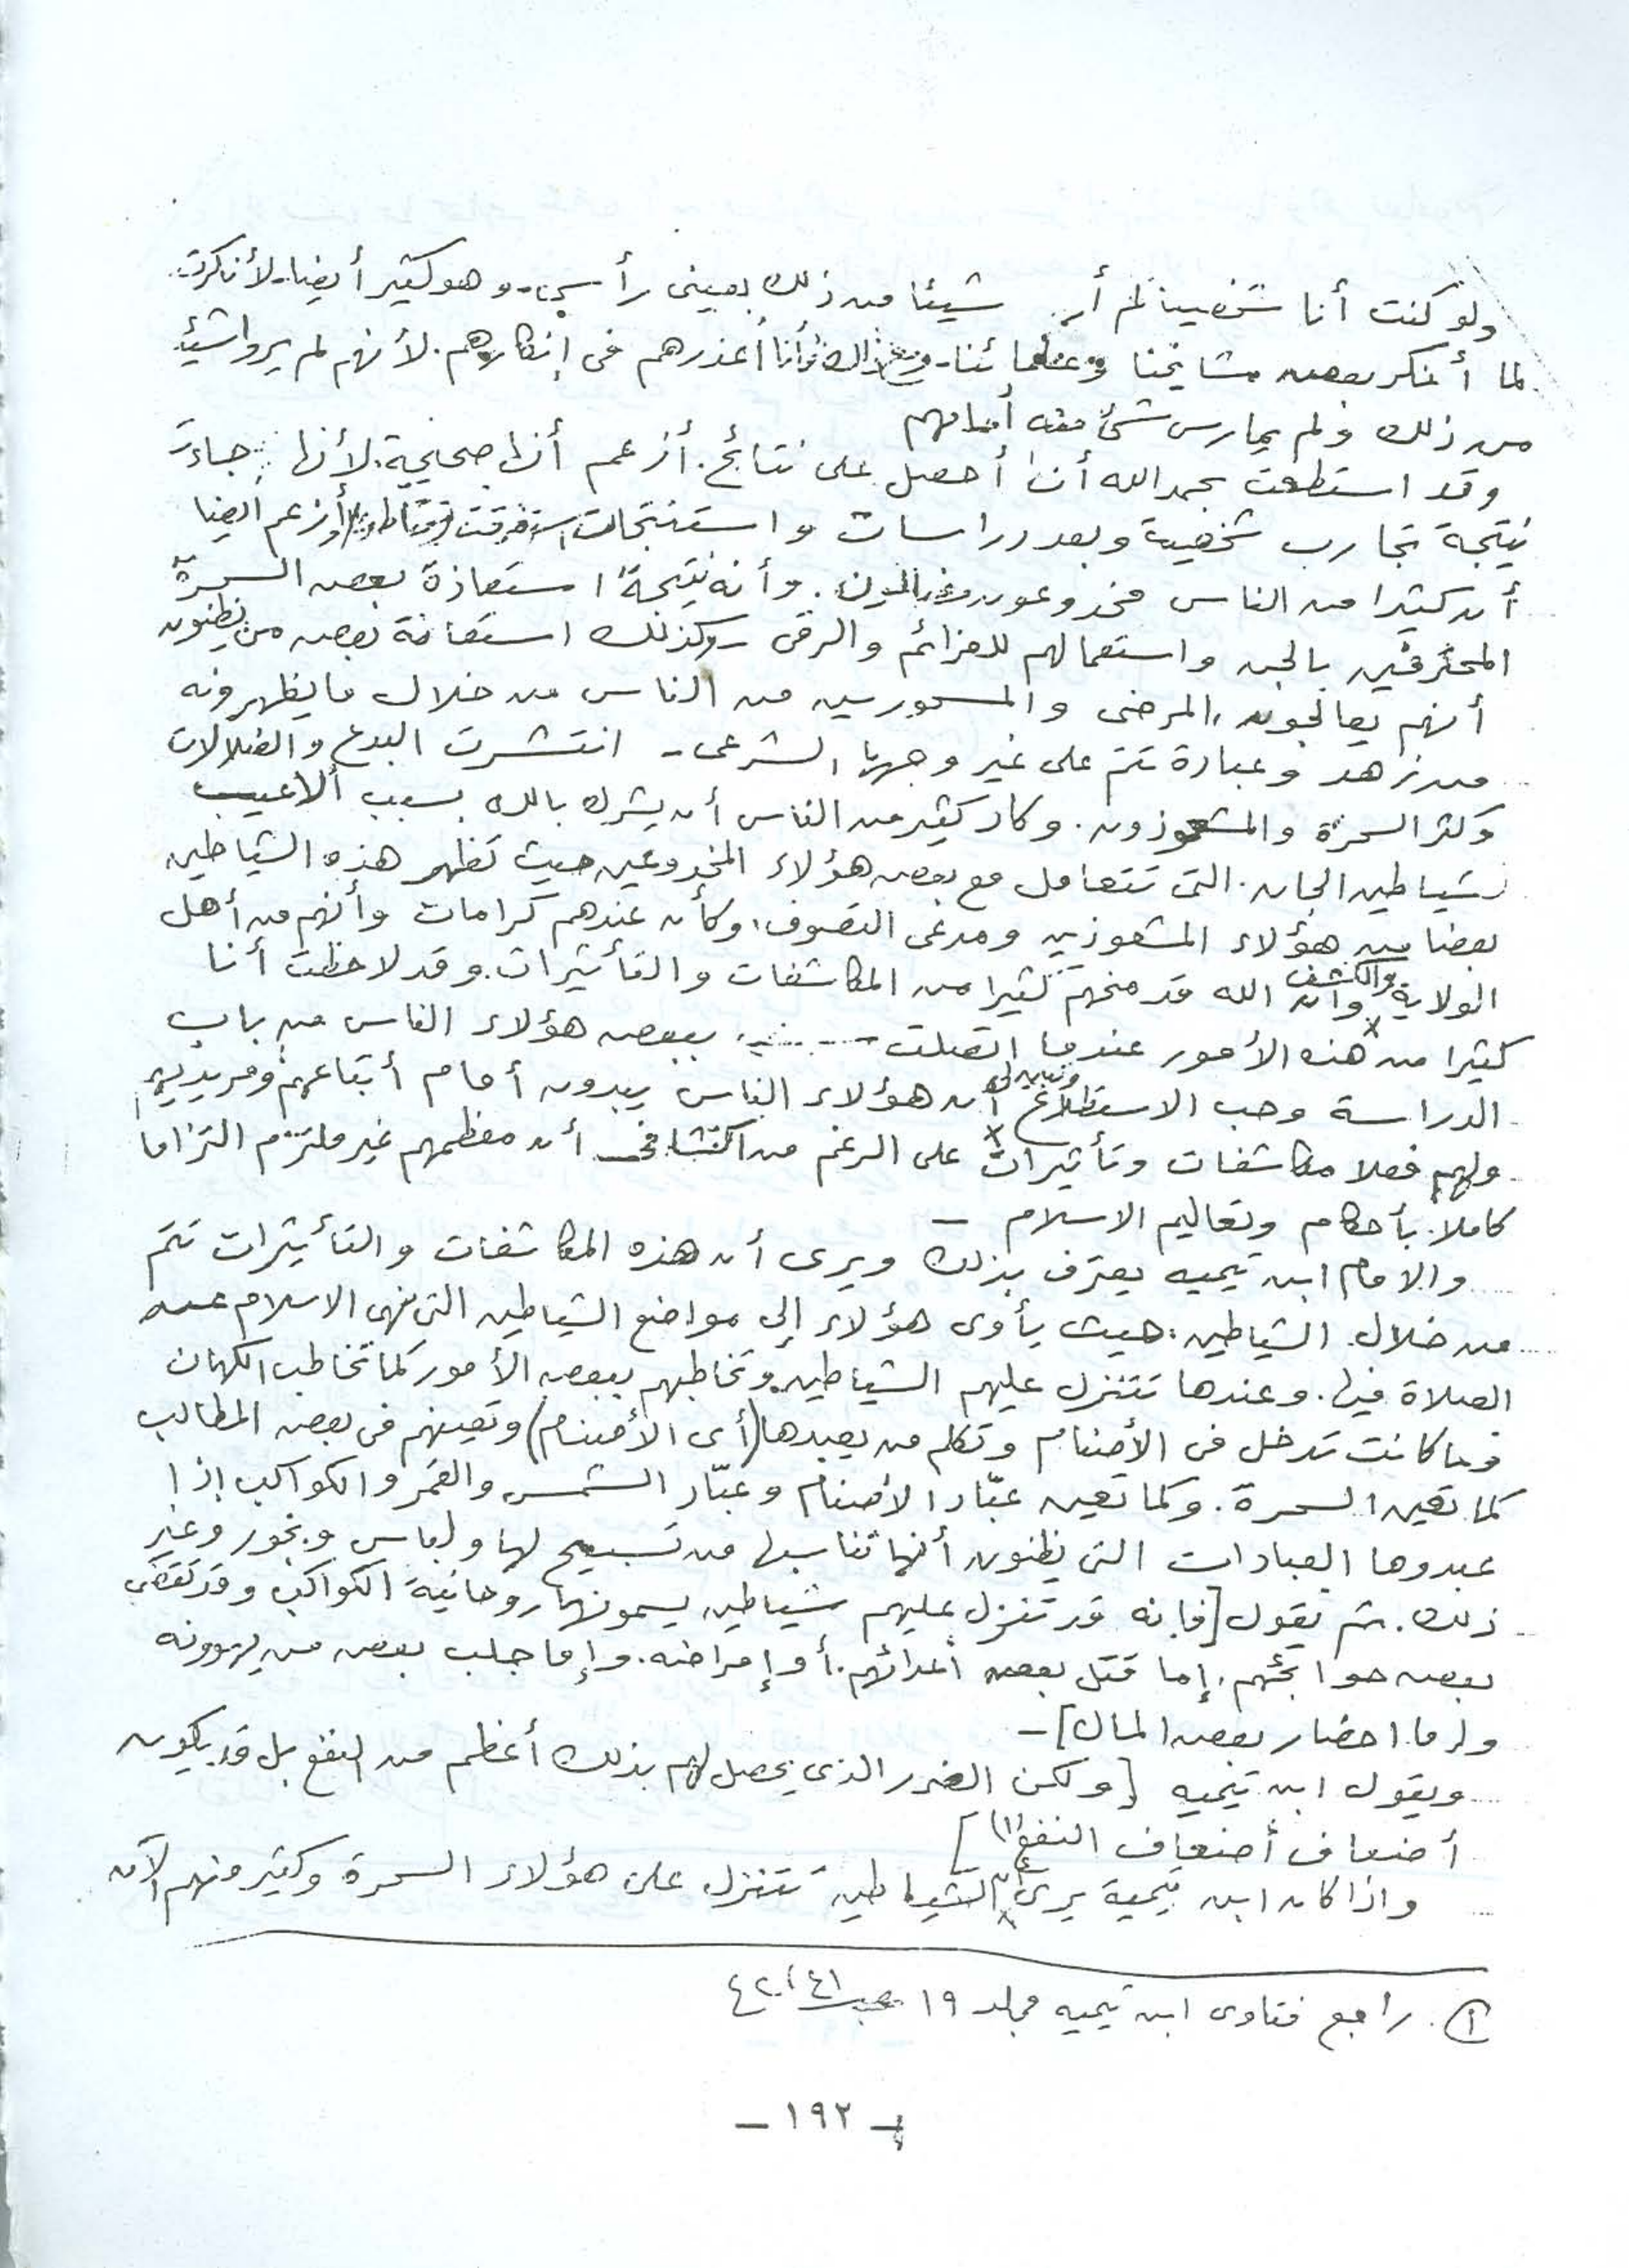 ولو كنت أنا شخصيا لم أر شيئا من ذلك بعينى رأسى - وهو كثير أيضا - لأنكرت
لما أنكر بعض مشايخنا وعلمائنا - ومع ذلك فأنا أعذرهم فى إنكارهم. لأنهم لم يروا شيئا
من ذلك ولم يمارس شئ منه أمامهم
وقد استطعت بحمد الله أن أحصل على نتائج. أزعم أنها صحيحة. لأنها جاءت
نتيجة تجارب شخصية وبعد دراسات واستنتجات استغرقت وأزعم أيضا
أن كثيرا من الناس مخدوعون. وأنه نتيجة استعاذة بعض السحرة
المحترفين بالجن واستعمالهم للعزائم والرقى - وكذلك استعانة بعض من يظنون
أنهم يعالجون المرضى والمسحورين من الناس من خلال ما يظهرونه
من زهد وعبادة تتم على غير وجهها الشرعى - انتشرت البدع والضلالات
وكثر السحرة والمشعوذون. وكاد كثير من الناس أن يشرك بالله بسبب ألاعيب
شياطين الجان. التى تتعامل مع بعض هؤلاء المخدوعين حيث تظهر هذه الشياطين
بعضا من هؤلاء المشعوذين ومدعى التصوف، وكأن عندهم كرامات وأنهم من أهل
الولاية والكشف وأن الله قد منحهم كثيرا من المكاشفات والتأثيرات. وقد لاحظت أنا
كثيرا من هذه الأمور عندما اتصلت ببعض هؤلاء الناس من باب
الدراسة وحب الاستطلاع وتبين لى أن هؤلاء الناس يبدون أمام أتباعهم ومريديهم
ولهم فعلا مكاشفات وتأثيرات على الرغم من اكتشافى أن معظمهم غير ملتزم التزاما
كاملا. بأحكام وتعاليم الاسلام -
والامام ابن تيميه يعترف بذلك ويرى أن هذه المكاشفات والتأثيرات تتم
من خلال الشياطين: حيث يأوى هؤلاء إلى مواضع الشياطين التى نهى الاسلام عن
الصلاة فيها. وعندها تتنزل عليهم الشياطين وتخاطبهم ببعض الأمور كما تخاطب الكهان
وما كانت تدخل فى الأصنام وتكلم من يعبدها (أى الأصنام) وتعينهم فى بعض المطالب
كما تعين السحرة. وكما تعين عبّاد الأصنام وعبّاد الشمس والقمر والكواكب إذا
عبدوها العبادات التى يظنون أنها تناسبها من تسبيح لها ولباس وبخور وغير
ذلك. ثم يقول [فإنه قد تنزل عليهم شياطين يسمونها روحانية الكواكب وقد تقضى
بعض حوائجهم. إما قتل بعض أعدائهم. أو إمراضه. وإما جلب بعض من يهوونه
وإما احضار بعض المال] -
ويقول ابن تيميه [ولكن الضرر الذى يحصل لهم بذلك أعظم من النفع بل قد يكون
أضعاف أضعاف النفع (١)]
واذا كان ابن تيمية يرى أن الشياطين تتنزل على هؤلاء السحرة وكثير منهم الآن
(١). راجع فتاوى ابن تيميه مجلد ١٩ صـ ٤١، ٤٢
- ١٩٢ -